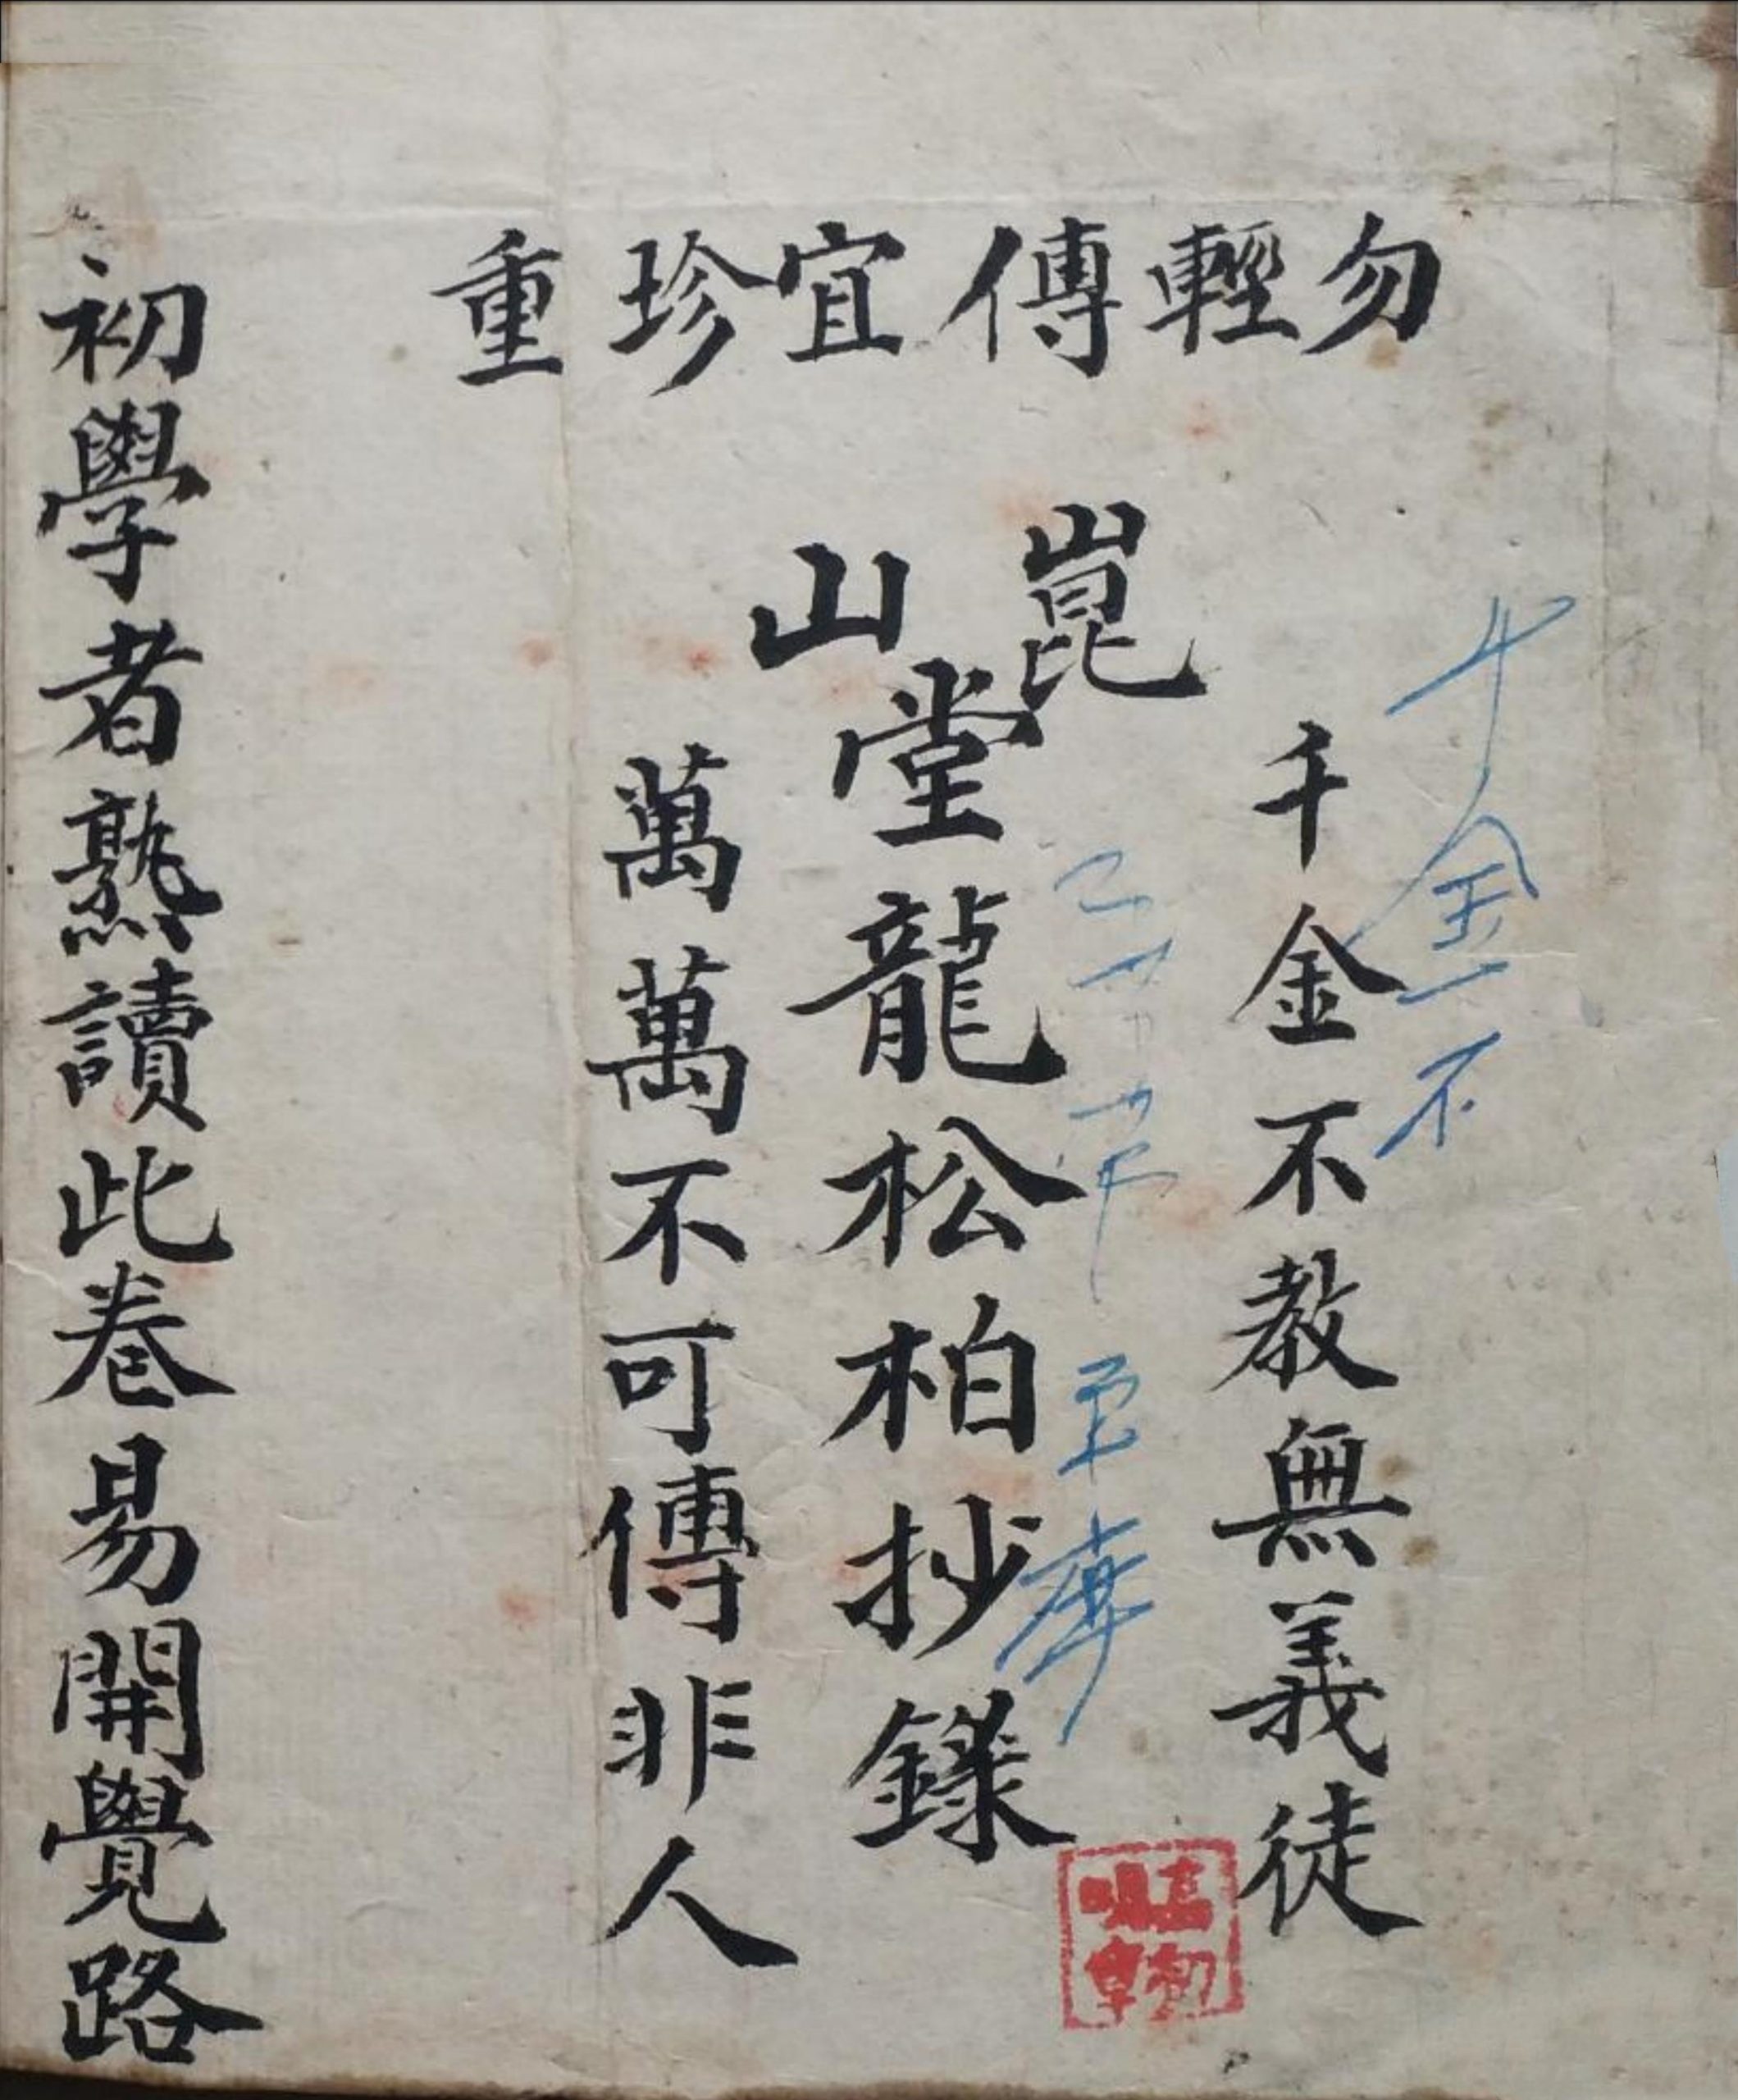 勿輕傳宜珍重
千金不
千金不教無義徒
崑山堂龍松柏抄錄
萬萬不可傳非人
初學者熟讀此卷易開覺路